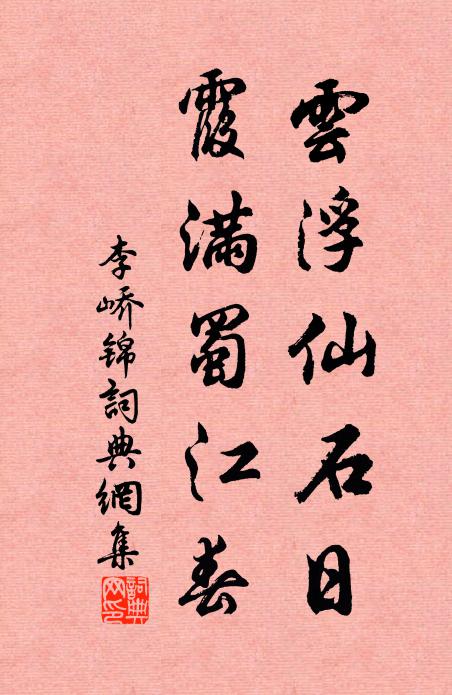 雲浮仙石日
霞滿蜀江春
李嶠錦詞典網集
詞典網印